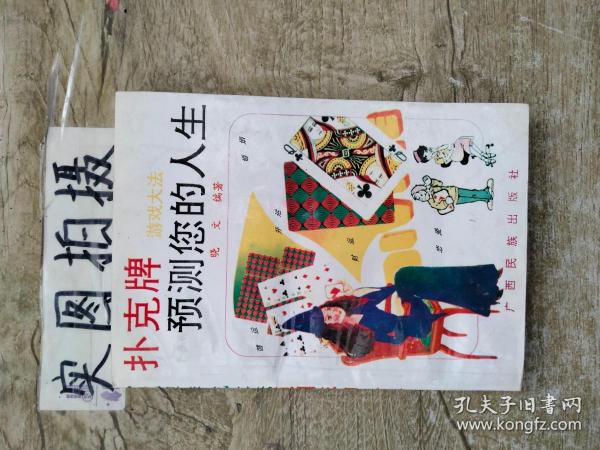 实图拍摄
扑克牌
游戏大法
预测您的人生
晓文 编著
婚姻
开运
财运
恋爱
广西民族出版社
孔夫子旧书网
www.kongfz.com